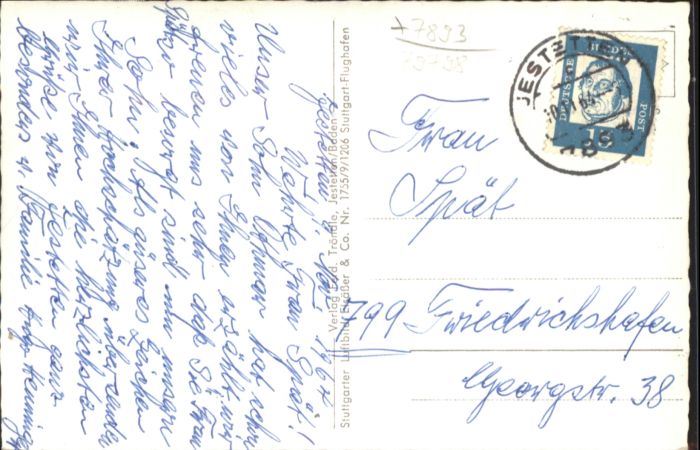 Jestetten, 1964
Wehrte Frau Spät!
Unser Sohn hat schon
vieles von Ihnen erzählt, wir
freuen uns sehr daß Sie Frau
Spät so besorgt sind um unsern
Sohn. Als äuseres Zeichen
Ihrer Hochschätzung übersenden
wir Ihnen die herzlichsten
Grüße von Jestetten ganz
besonders v. Familie
Verlag Ferd. Tröndle, Jestetten/Baden
Stuttgarter Luftbild Elsäßer & Co. Nr. 1755/9/1206 Stuttgart-Flughafen
+7893
JESTETTEN
DEUTSCHE
BUNDES
POST
15
Frau
Spät
799 Friedrichshafen
Georgstr. 38